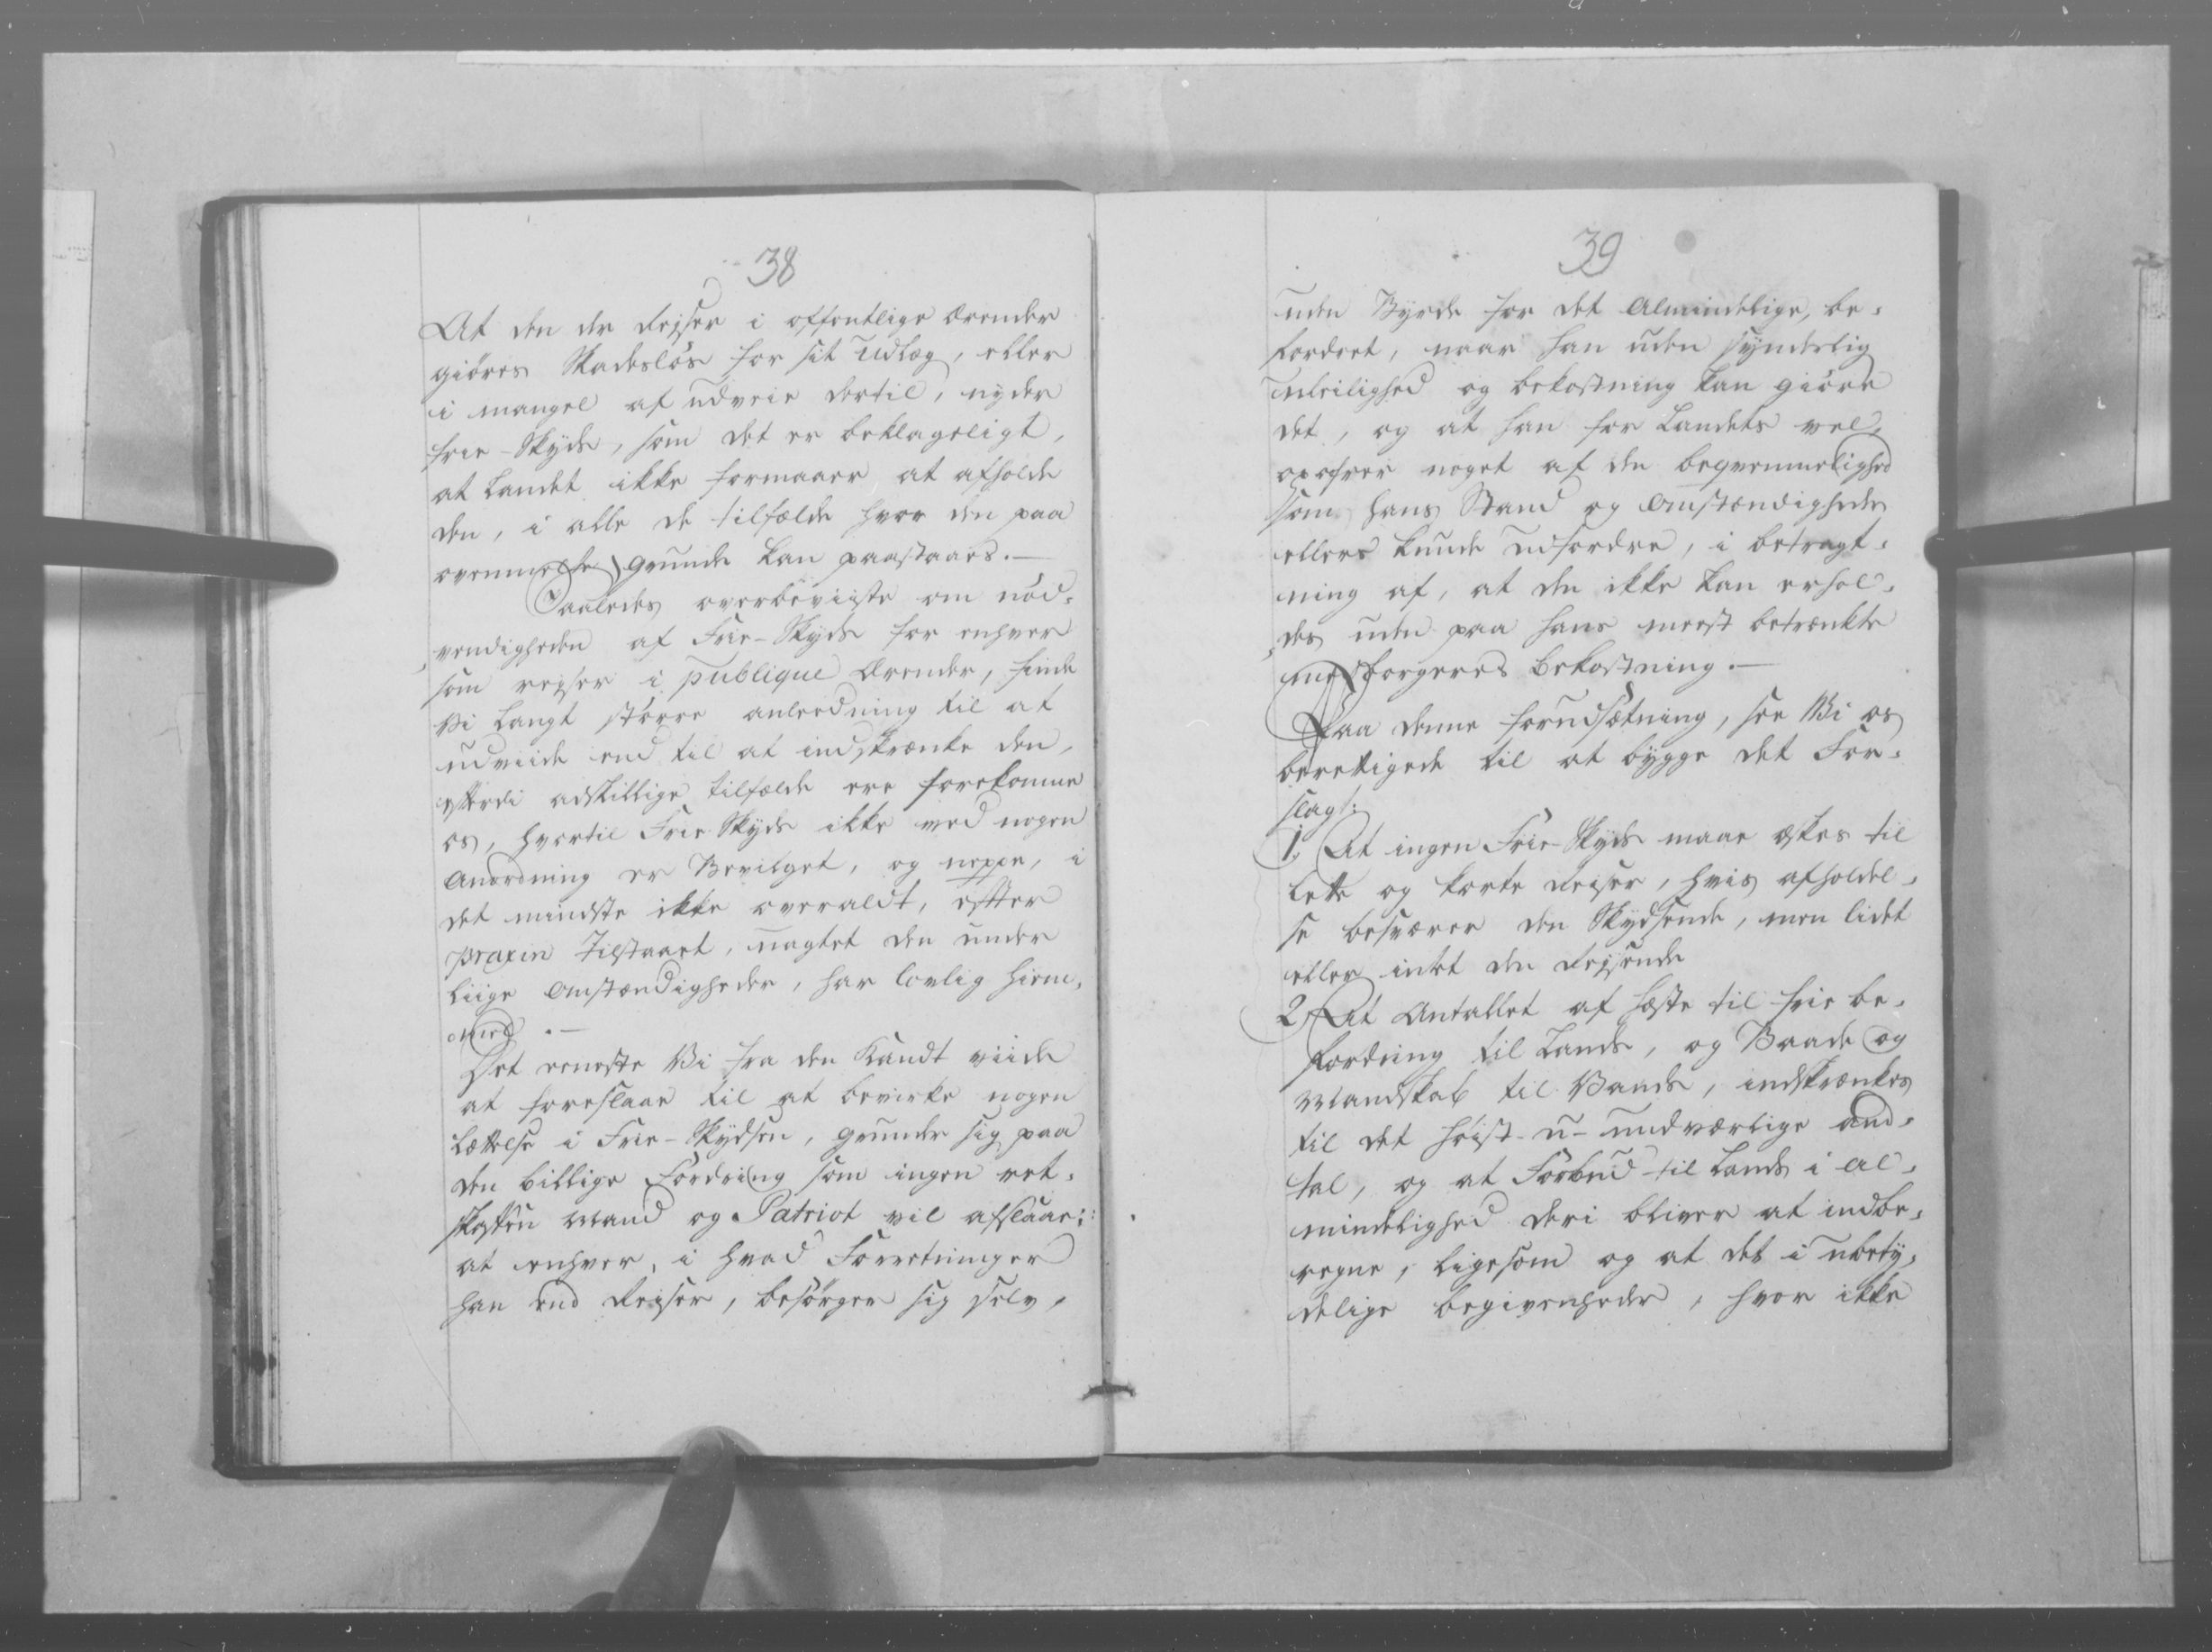 38
At den der Rejser i offentlige Ærender
giöres Skadeslös for sit Udlæg, eller
i mangel af udveie dertil, nyder
frie-Skyds, som det er beklageligt,
at Landet ikke formaaer at afholde
den, i alle de tilfælde hvor den paa
ovenmelte grunde kan paastaaes.—
Saaledes overbeviiste om nöd-
vendigheden af Frie-Skyds for enhver
som rejser i publique Ærender, finde
Vi langt större anleedning til at
udviide end til at indskrænke den,
efterdi adskillige tilfælde ere forekomne
os, hvortil Frie Skyds ikke ved nogen
Anordning er Bevilget, og neppe, i
det mindste ikke overaldt, effter
praxin Tilstaaet, uagtet den under
liige Omstændigheder, har lovlig hiem-
mel.—
Det eeneste Vi fra den Kandt viide
at foreslaae til at bevirke nogen
Lettelse i Frie-Skydsen, grunder sig paa
den billige Fordring som ingen ret-
skaffen Mand og Patriot vil afslaae:
at enhver, i hvad Forretninger
han end Rejser, besörger sig selv,
39
uden Byrde for det Almindelige, be-
fordret, naar han uden synderlig
uleilighed og bekostning kan giöre
det, og at han for Landets vel,
opofrer noget af den beqvemmelighed
som hans Stand og Omstændigheder
ellers kunde udfordre, i betragt-
ning af, at den ikke kan erhol-
des uden paa hans meest betrænkte
medborgeres bekostning.—
Paa denne forudsætning, see Vi os
berettigede til at bygge det For-
slag:
1, At ingen Frie-Skyds maae æskes til
lette og korte Reiser, hvis afholdel-
se besværer den Skydsende, men lidet
eller intet den Rejsende
2, At Antallet af Heste til frie be-
fordring til Lands, og Baade og
Mandskab til Vands, indskrænkes
til det höist-u-undværlige an-
tal, og at Forbud til Lands i Al-
mindelighed deri bliver at indbe-
regne, ligesom og at det i ubety-
delige begivenheder, hvor ikke